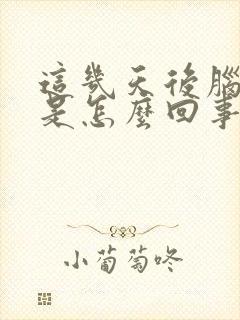 這幾天後腦
是怎麼回事
小葡萄咚